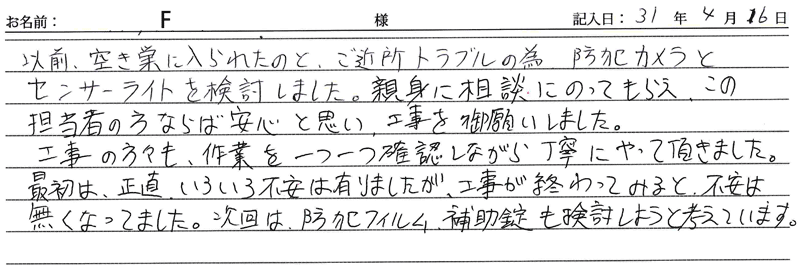 お名前： F 様 記入日： 31 年 4 月 16 日
以前、空き巣に入られたのと、ご近所トラブルの為、防犯カメラと
センサーライトを検討しました。親身に相談にのってもらえ、この
担当者の方ならば安心と思い、工事を御願いしました。
工事の方々も、作業を一つ一つ確認しながら丁寧にやって頂きました。
最初は、正直、いろいろ不安は有りましたが、工事が終わってみると、不安は
無くなってました。次回は、防犯フィルム、補助錠も検討しようと考えています。